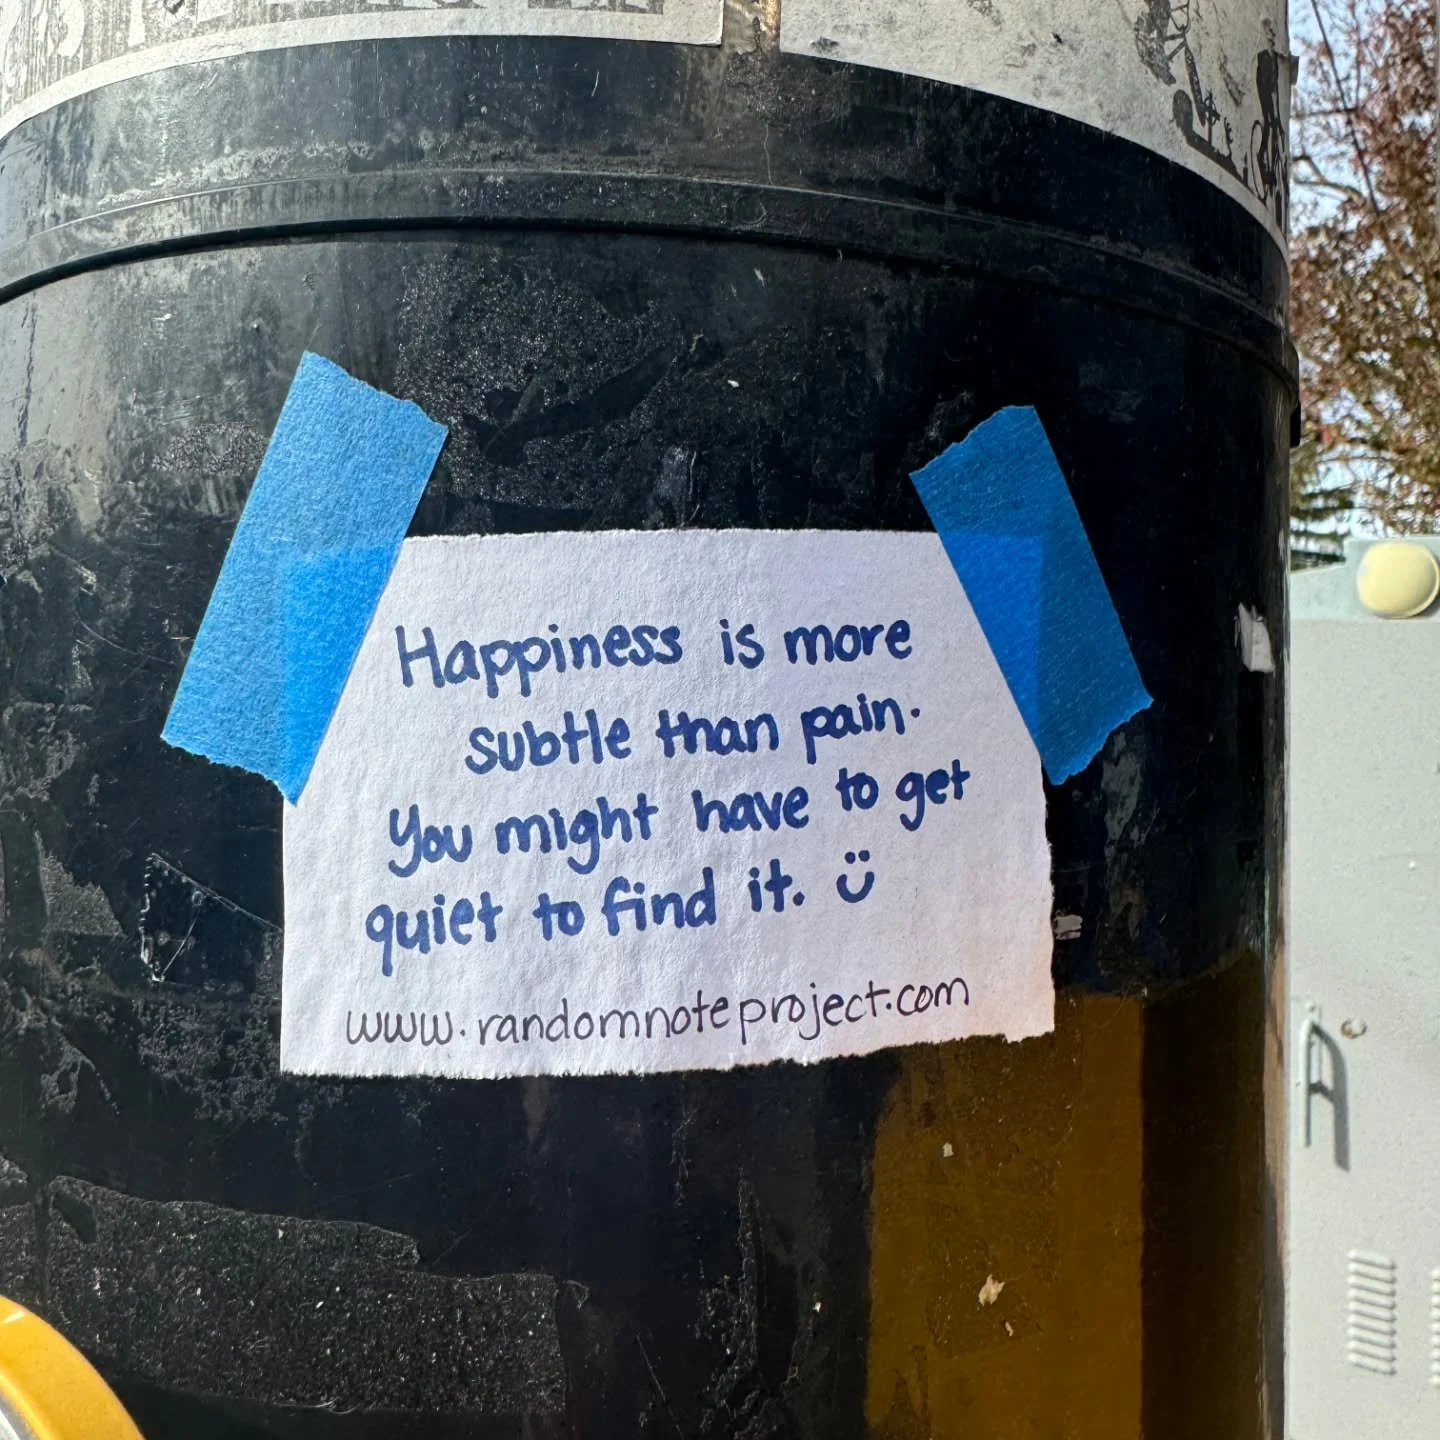 Happiness is more
subtle than pain.
You might have to get
quiet to find it. ü
www.randomnoteproject.com